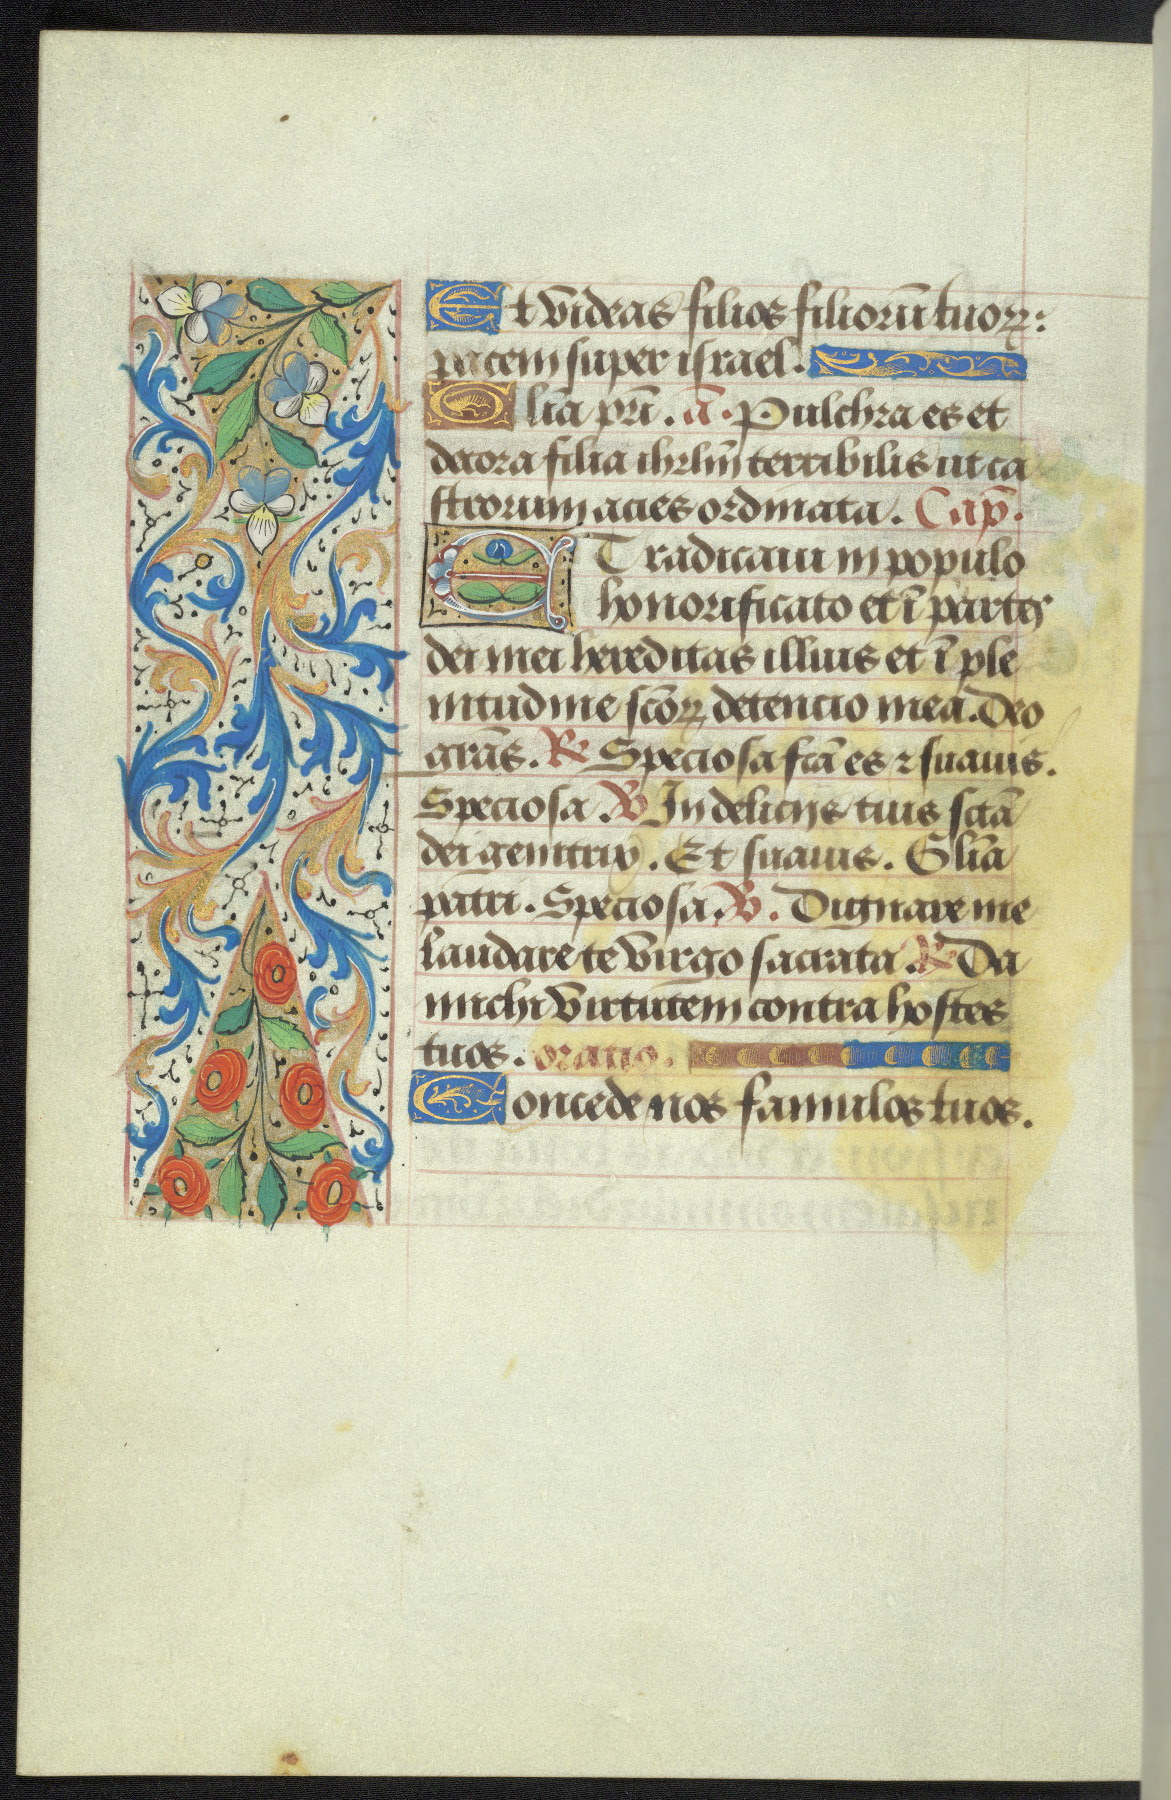 Et videas filios filiorū tuoꝝ:
pacem super israel.
Glīa pr̄i. ā. Pulchra es et
decora filia ihrlm̄ terribilis ut ca
strorum acies ordinata. Cap̄.
ET radicaui in populo
honorificato et ī partes
dei mei hereditas illius et ī ple
nitudine sc̄oꝝ detencio mea. Deo
grās. ℟ Speciosa fc̄ā es ⁊ suauis.
Speciosa ℣ In delicijs tuis sctā
dei genitrix. Et suauis. Glīa
patri. Speciosa. ℣. Dignare me
laudare te virgo sacrata. ℟ Da
michi virtutem contra hostes
tuos. oratio.
Concede nos famulos tuos.